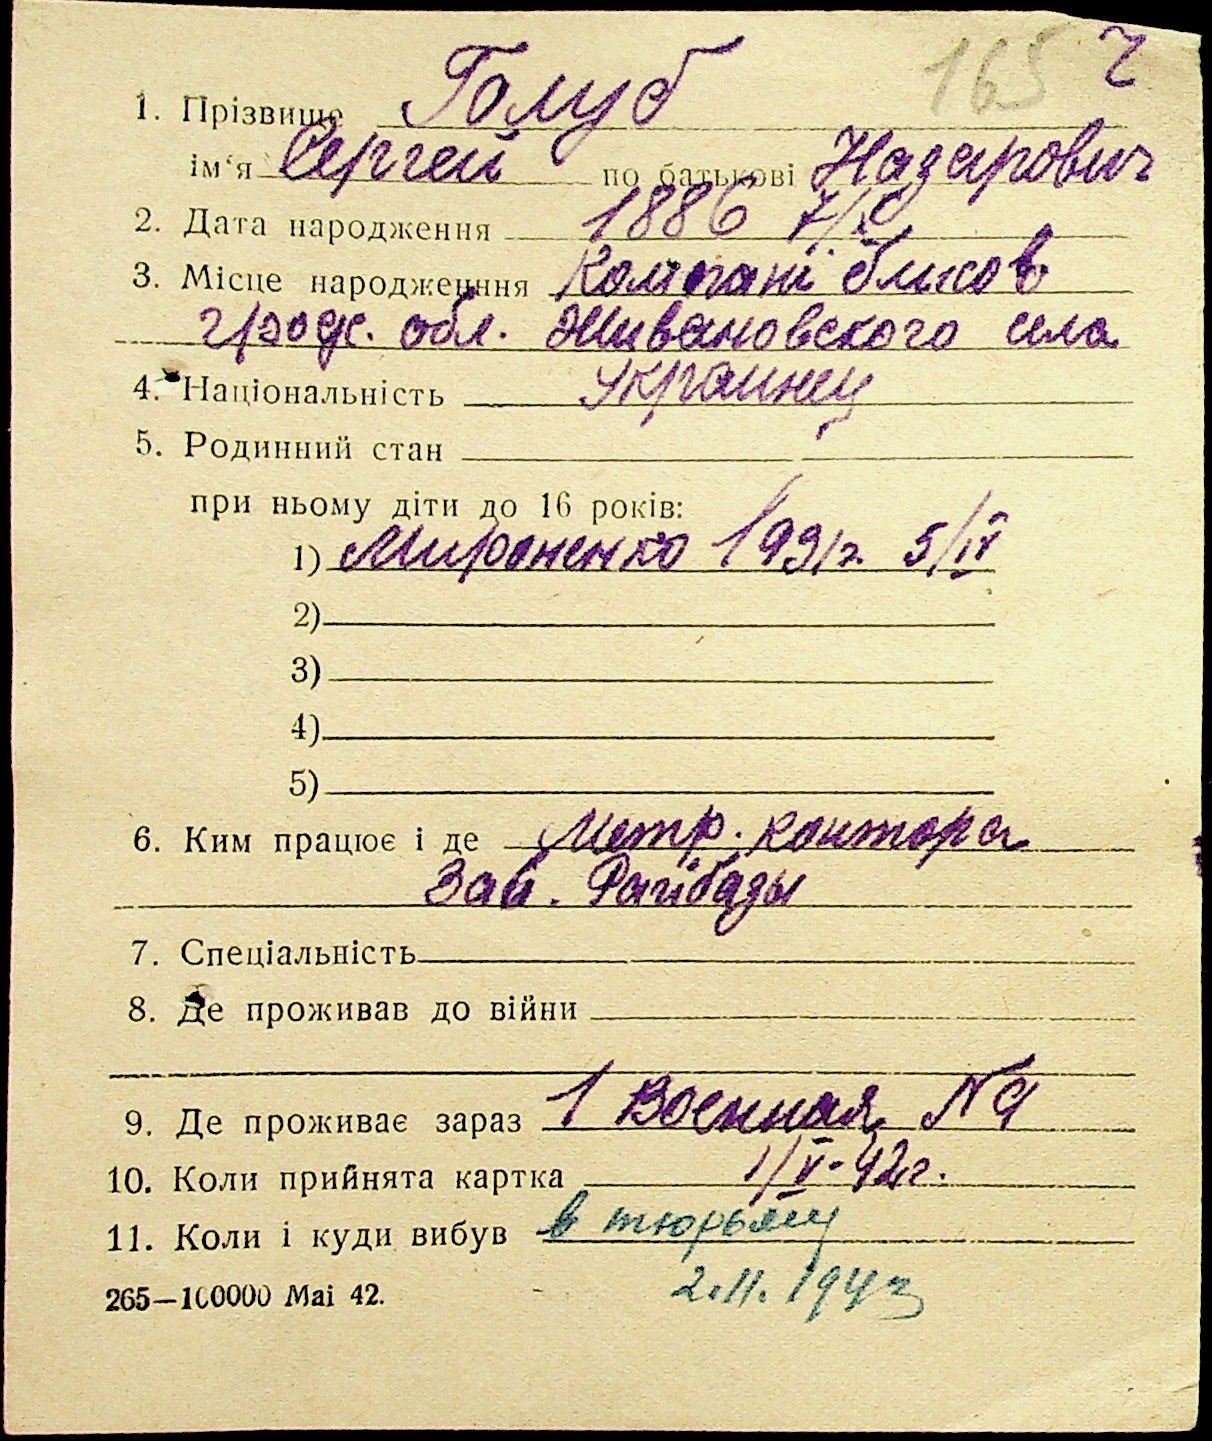 165 Ч
1. Прізвище Голуб
ім'я Сергей по батькові Назарович
2. Дата народження 1886 7/X
3. Місце народженння
обл. села
4. Національність Украинец
5. Родинний стан
при ньому діти до 16 років:
1) Мироненко 1931г. 5/IV
2)
3)
4)
5)
6. Ким працює і де Метр. контора
Зав.
7. Спеціальність
8. Де проживав до війни
9. Де проживає зараз 1 Военная N 9
10. Коли прийнята картка 1/V-42г.
11. Коли і куди вибув в тюрьму
265—100000 Mai 42. 2.II.1943